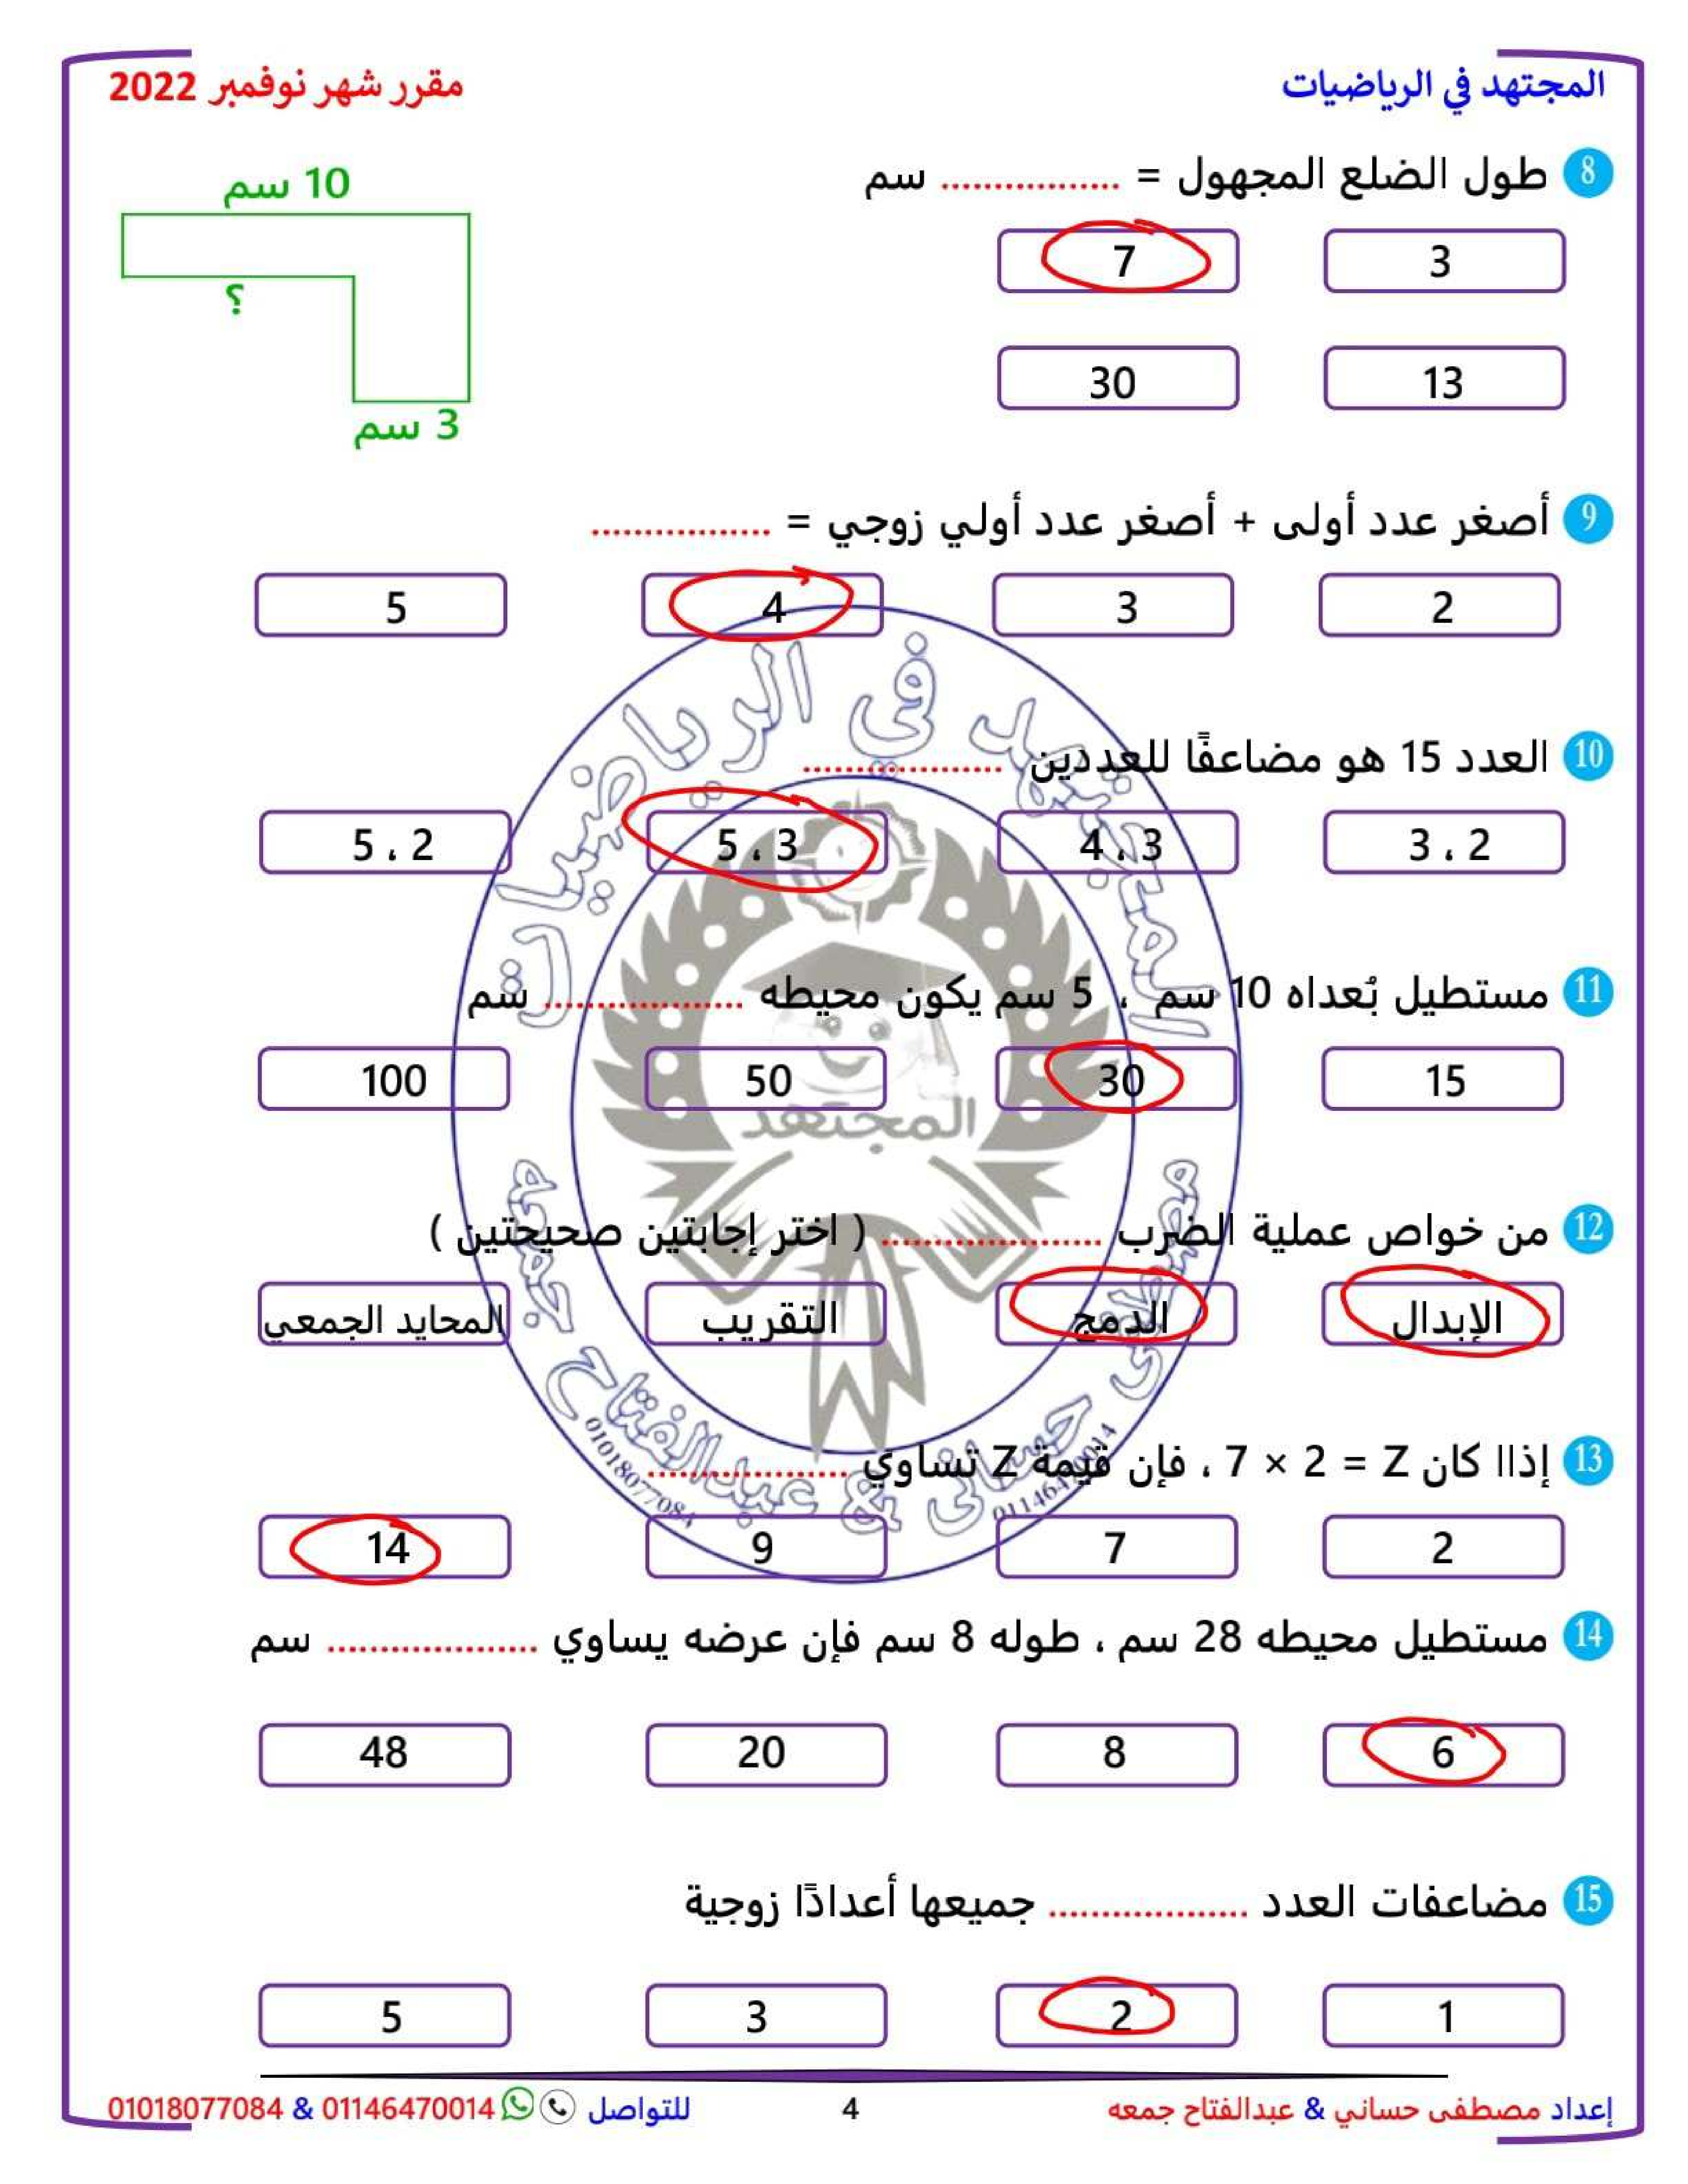 المجتهد في الرياضيات
مقرر شهر نوفمبر 2022
8 طول الضلع المجهول = ................. سم
3
7
13
30
10 سم
؟
3 سم
9 أصغر عدد أولى + أصغر عدد أولي زوجي = .................
2
3
4
5
10 العدد 15 هو مضاعفًا للعددين ...................
2 ، 3
3 ، 4
3 ، 5
2 ، 5
11 مستطيل بُعداه 10 سم ، 5 سم يكون محيطه ................... سم
15
30
50
100
12 من خواص عملية الضرب ..................... ( اختر إجابتين صحيحتين )
الإبدال
الدمج
التقريب
المحايد الجمعي
13 إذاا كان 7 × 2 = Z ، فإن قيمة Z تساوي ...................
2
7
9
14
14 مستطيل محيطه 28 سم ، طوله 8 سم فإن عرضه يساوي .................... سم
6
8
20
48
15 مضاعفات العدد ................... جميعها أعدادًا زوجية
1
2
3
5
المجتهد في الرياضيات
المجتهد
مصطفى حسانى & عبدالفتاح جمعه
01146470014
01018077084
إعداد مصطفى حساني & عبدالفتاح جمعه
4
للتواصل 01146470014 & 01018077084